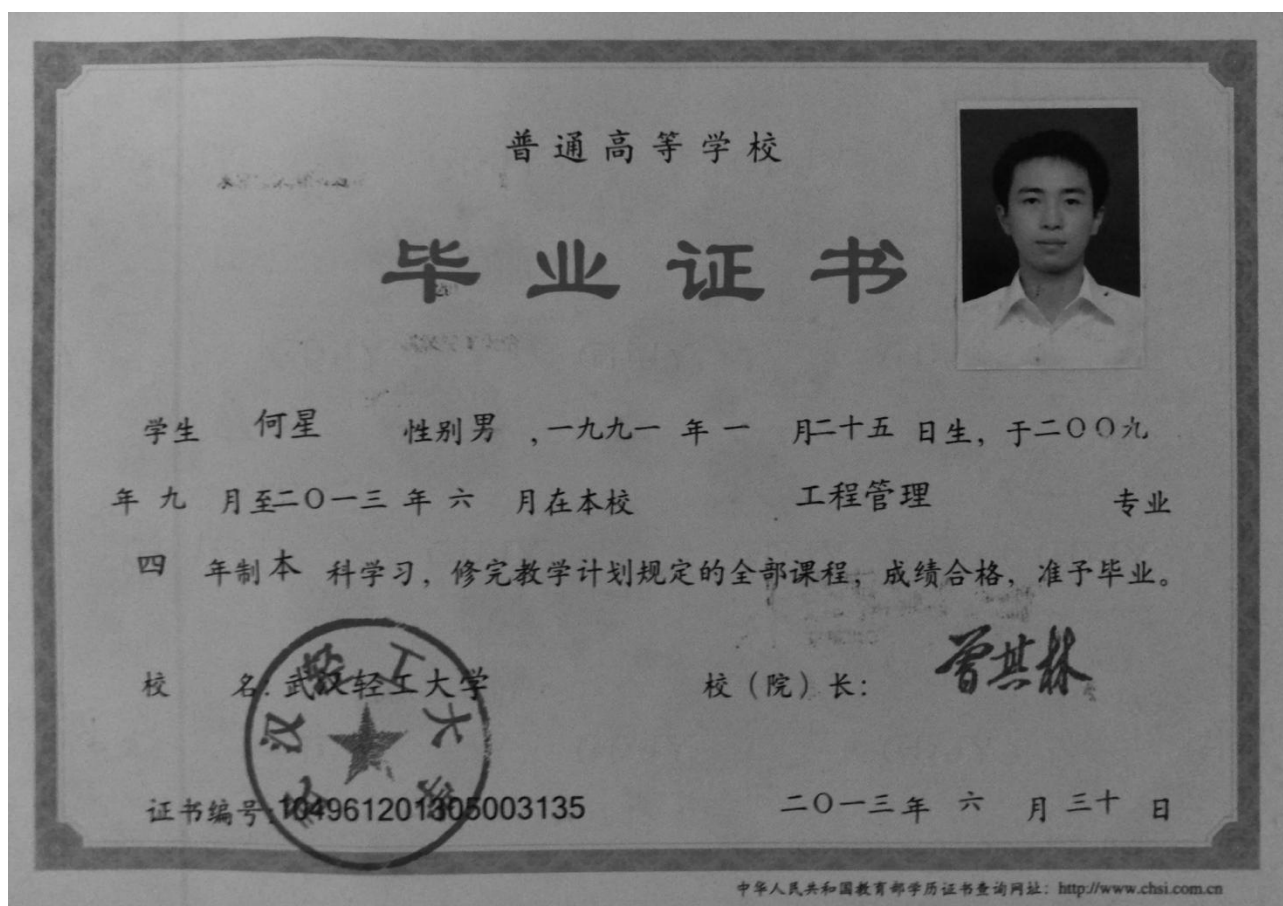 普通高等学校
毕业证书
学生 何星 性别 男 ,一九九一 年 一 月二十五 日生, 于二〇〇九
年 九 月至二〇一三 年 六 月在本校 工程管理 专业
四 年制 本 科学习, 修完教学计划规定的全部课程, 成绩合格, 准予毕业。
校 名: 武汉轻工大学 校(院)长: 曾其林
武汉轻工大学
证书编号:104961201305003135 二〇一三年 六 月 三十 日
中华人民共和国教育部学历证书查询网址: http://www.chsi.com.cn